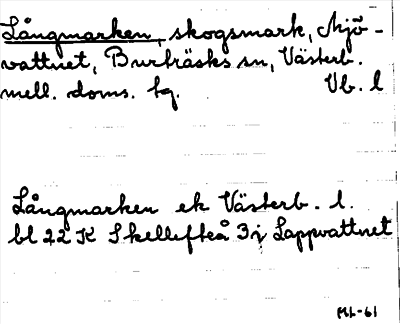 Långmarken, skogsmark, Mjö-
vattnet, Burträsks sn, Västerb.
mell. doms. tg. Vb. l
Långmarken ek Västerb. l.
bl 22 K Skellefteå 3j Lappvattnet
ML-61